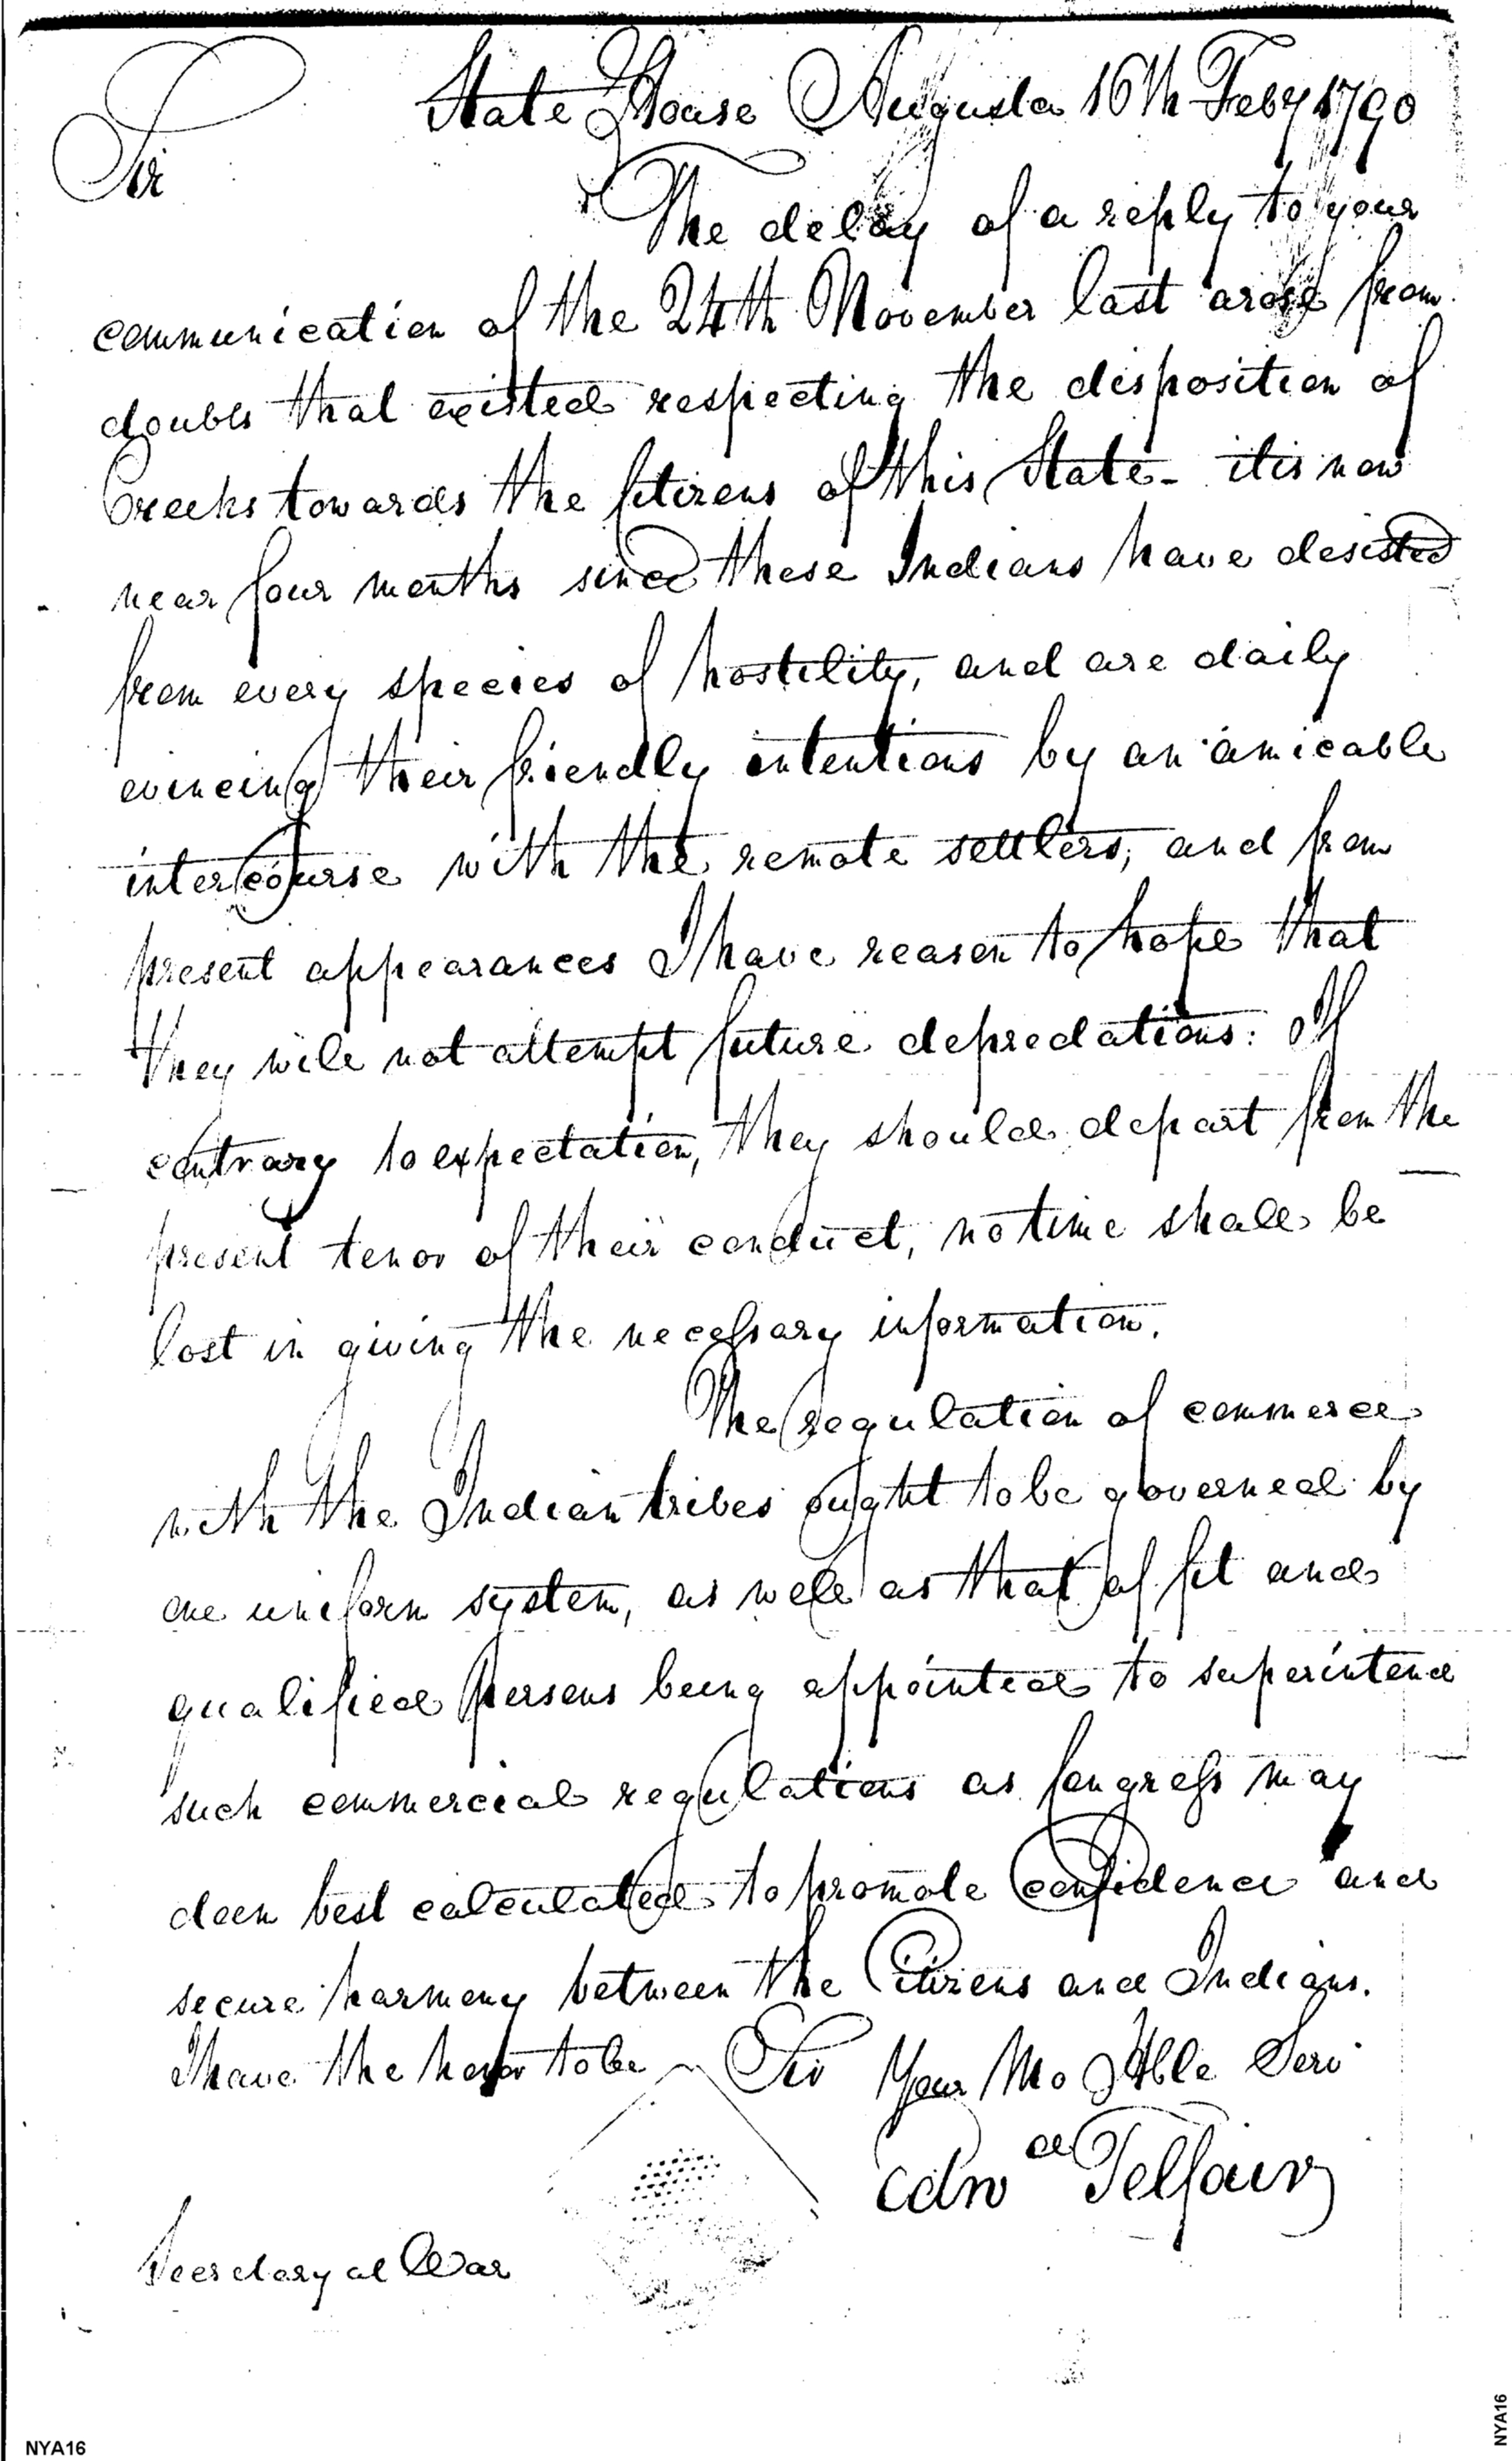 State House Augusta 16th Feby 1790
Sir
The delay of a reply to your
communication of the 24th November last arose from
doubts that existed respecting the disposition of
Creeks towards the Citizens of this State - it is now
near four months since these Indians have desisted
from every species of hostility, and are daily
evincing their friendly intentions by an amicable
intercourse with the remote settlers; and from
present appearances I have reason to hope that
they will not attempt future depredations: If
contrary to expectation, they should depart from the
present tenor of their conduct, no time shall be
lost in giving the necessary information.
The regulation of commerce
with the Indian tribes ought to be governed by
one uniform system, as well as that of fit and
qualified persons being appointed to superintend
such commercial regulations as Congress may
deem best calculated to promote confidence and
secure harmony between the Citizens and Indians.
I have the honor to be Sir Your Mo Hble Serv
Edwd Telfair
Secretary at War
NYA16
NYA16